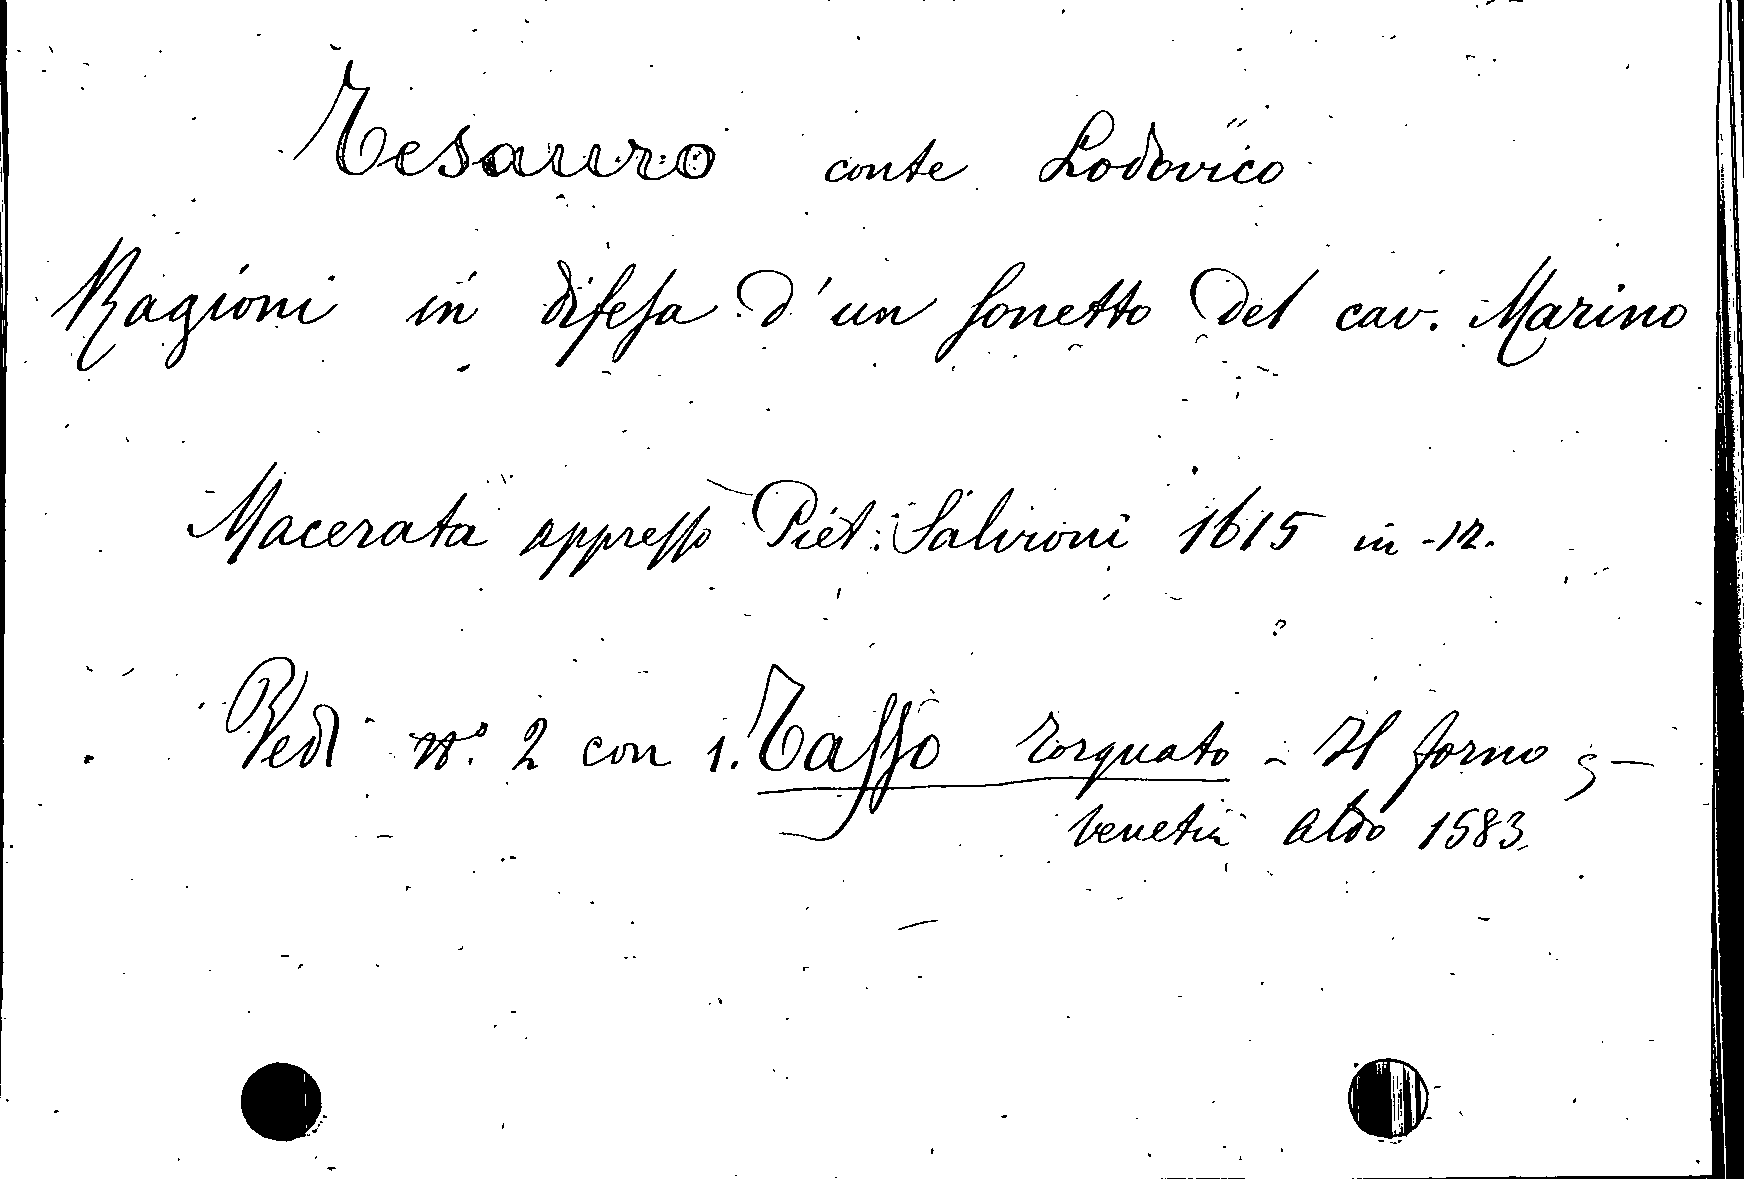 Tesauro conte Lodovico
Ragioni in difesa d'un sonetto del cav. Marino
Macerata appresso Piet. Salvioni 1615 in-12.
Vedi n.° 2 con 1. Tasso Torquato - Il forno
Venetia Aldo 1583